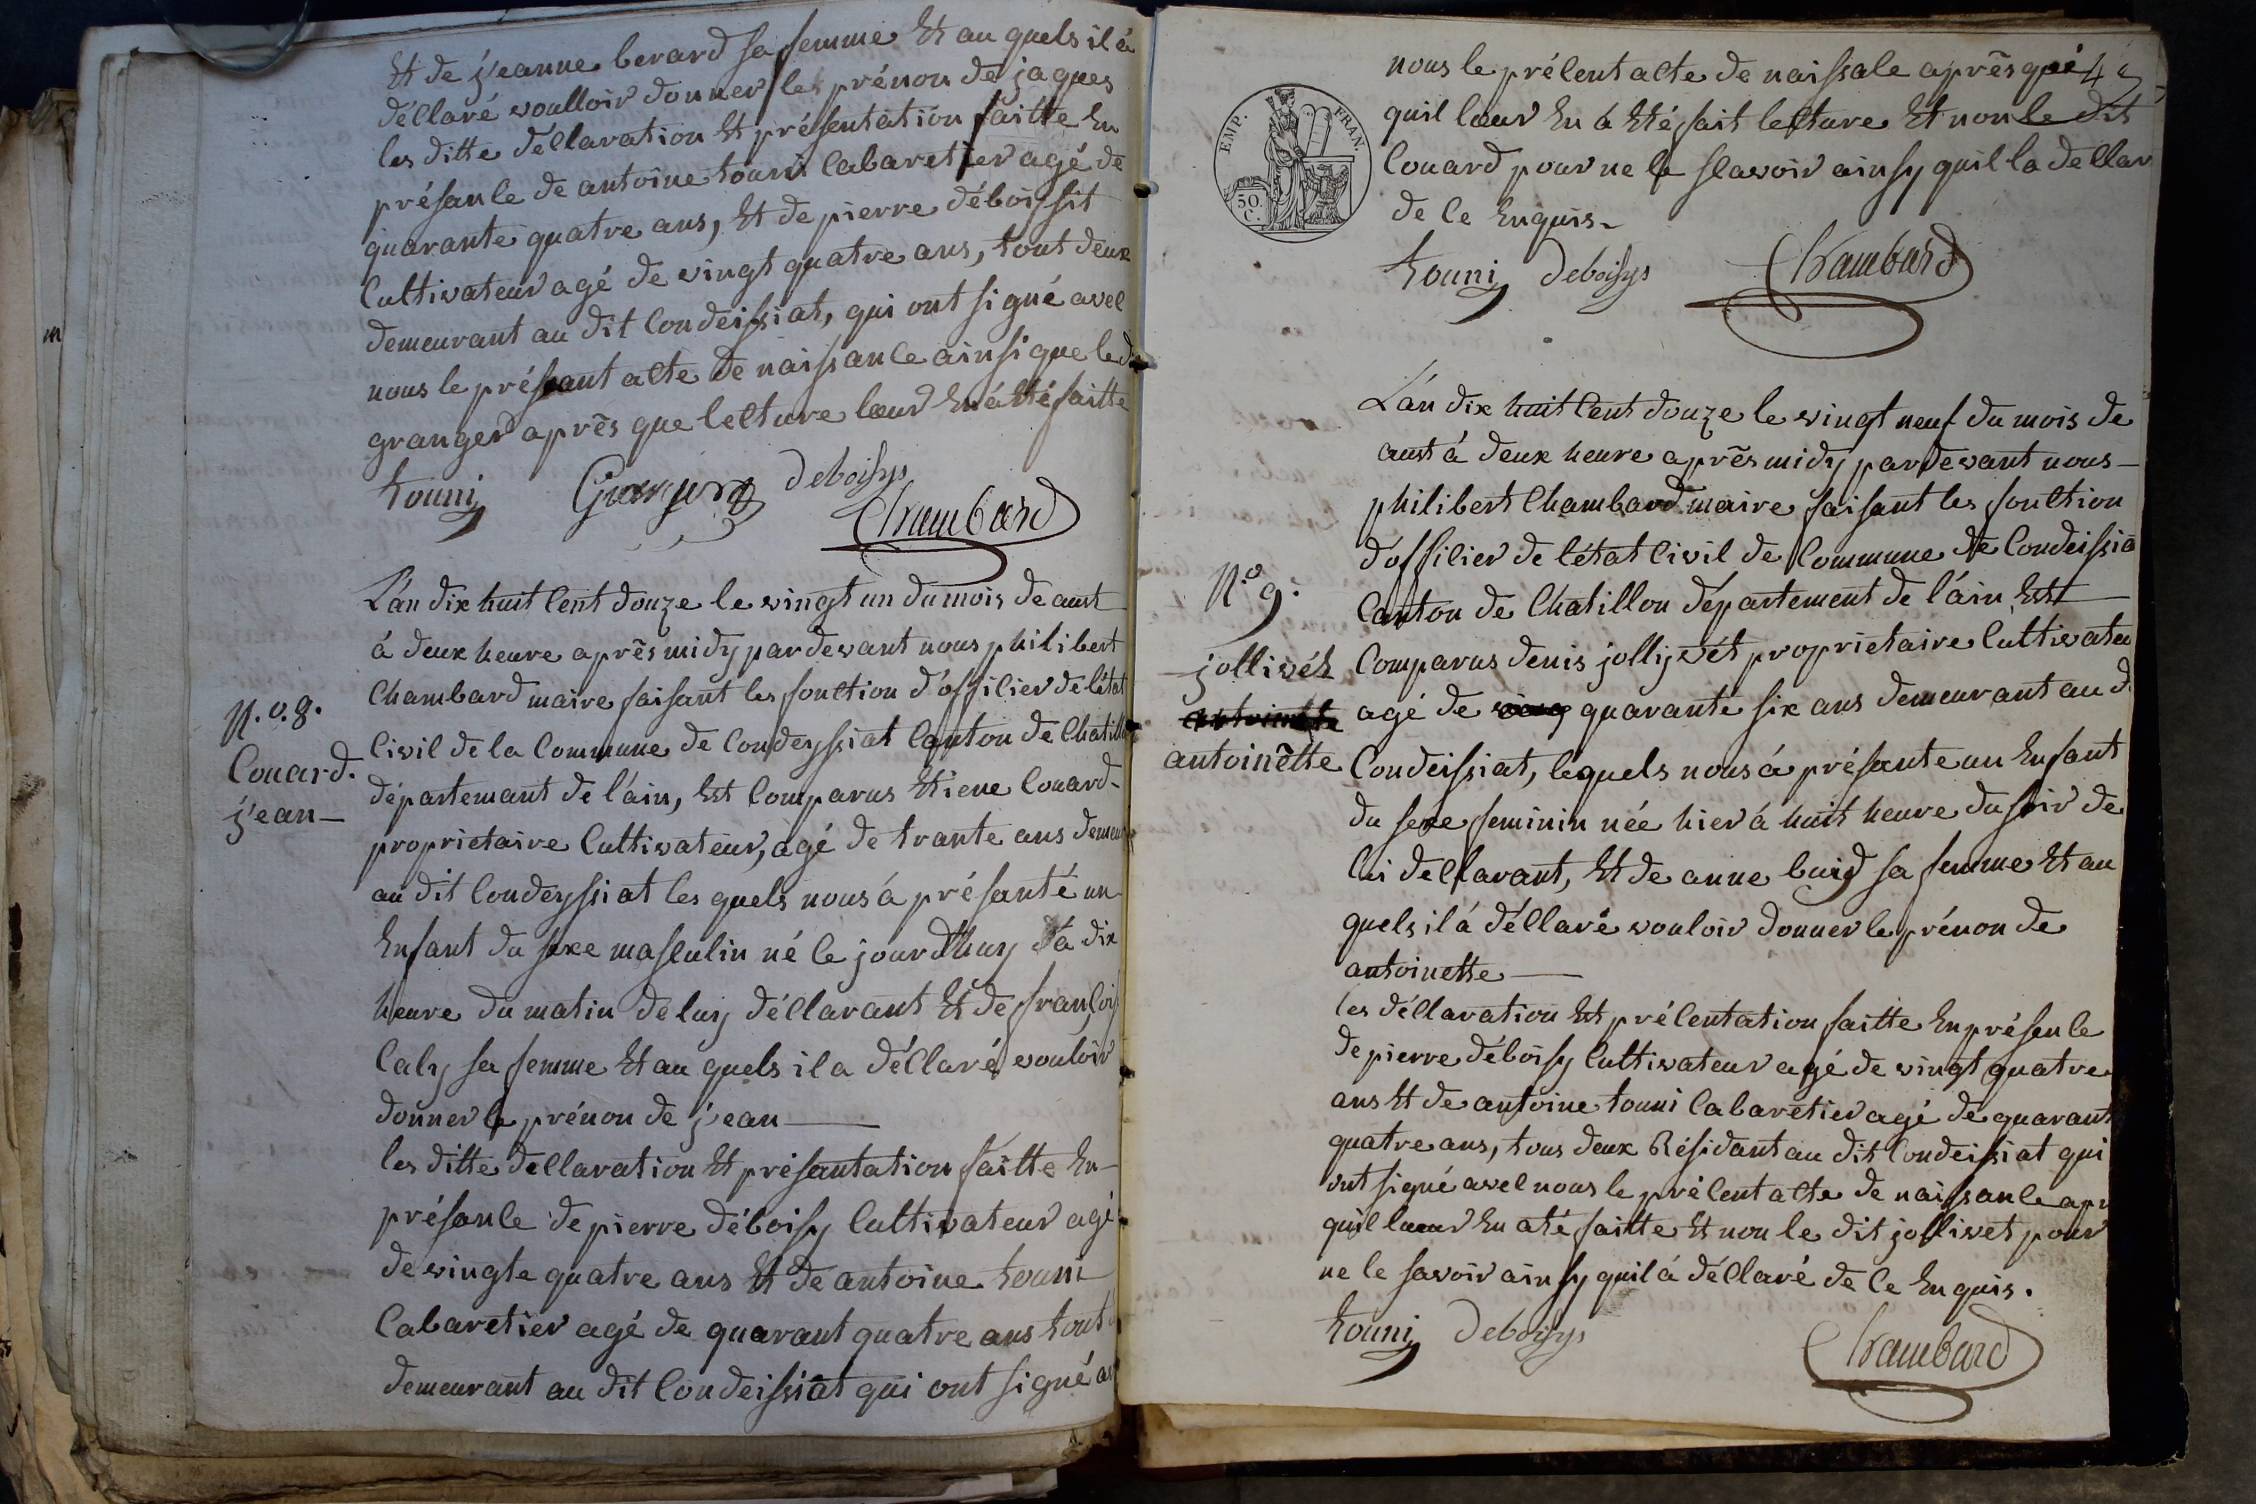 Et de jeanne berard sa femme Et au quels il á
déllaré voulloir donner les prénon de jaques
les ditte déllaration Et présentation faitte En
présanle de antoine touni Cabaretier agé de
quarante quatre ans, Et de pierre déboissit
Cultivateur agé de vingt quatre ans, tout deux
demeurant au dit Condeissiat, qui ont signé avel
nous le présant alte de naissanle ainsi que le d
granger après que lelture leur En á Eté faitte
touni Granger deboisys
Chambard
L'an dix huit Cent douze le vingt un du mois de aust
á deux heure après midy pardevant nous philibert
Chambard maire faisant les fonltion d'offilier de l'état
N.o.8.
Civil de la Commune de Condeyssiat Canton de Chatill
Couard.
département de l'áin, Est Comparus Etiene Couard
jean—
proprietaire Cultivateur, agé de trante ans demeu
au dit Condeyssiat les quels nous á présanté un
Enfant du sexe maslulin né le jourdhuy á dix
heure du matin de luy déllarant Et de françois
Caly sa femme Et au quels il a déllaré vouloir
donner le prénon de jean—
les ditte dellaration Et présantation faitte En—
présanle de pierre déboisy Cultivateur agé
de vingte quatre ans Et de antoine touni
Cabaretier agé de quarant quatre ans tout
demeurant au dit Condeissiat qui ont signé av
EMP. FRAN.
50. C.
nous le prélent alte de naissale après que
quil leur En á Eté fait lelture Et non le dit
Couard pour ne le slavoir ainsy quil la dellar
de Ce Enquis
touni deboisys Chambard
L'án dix huit Cent douze le vingt neuf du mois de
aust á deux heure après midy pardevant nous—
philibert Chambard maire faisant les fonltion
d'offilier de l'état Civil de Commune de Condeissia
N.o 9.
Canton de Chatillon département de l'áin Est
jollivét
Comparus denis jollyvét proprietaire Cultivateu
agé de quarante six ans demeurant au d
antoinette
Condeissiat, lequels nous á présante un Enfant
du sexe feminin née hier á huit heure du soir de
lui dellarant, Et de anne buid sa femme Et au
quels il á déllaré vouloir donner le prénon de
antoinette—
les déllaration Et prélentation faitte En présenle
de pierre déboisy Cultivateur agé de vingt quatre
ans Et de antoine touni Cabaretier agé de quarant
quatre ans, tous deux Résidant au dit Condeissiat qui
ont signé avel nous le prélent alte de naissanle apr
quil leur En até faitte Et non le dit jollivet pour
ne le savoir ainsy quil á déllaré de Ce Enquis.
touni Deboisys
Chambard